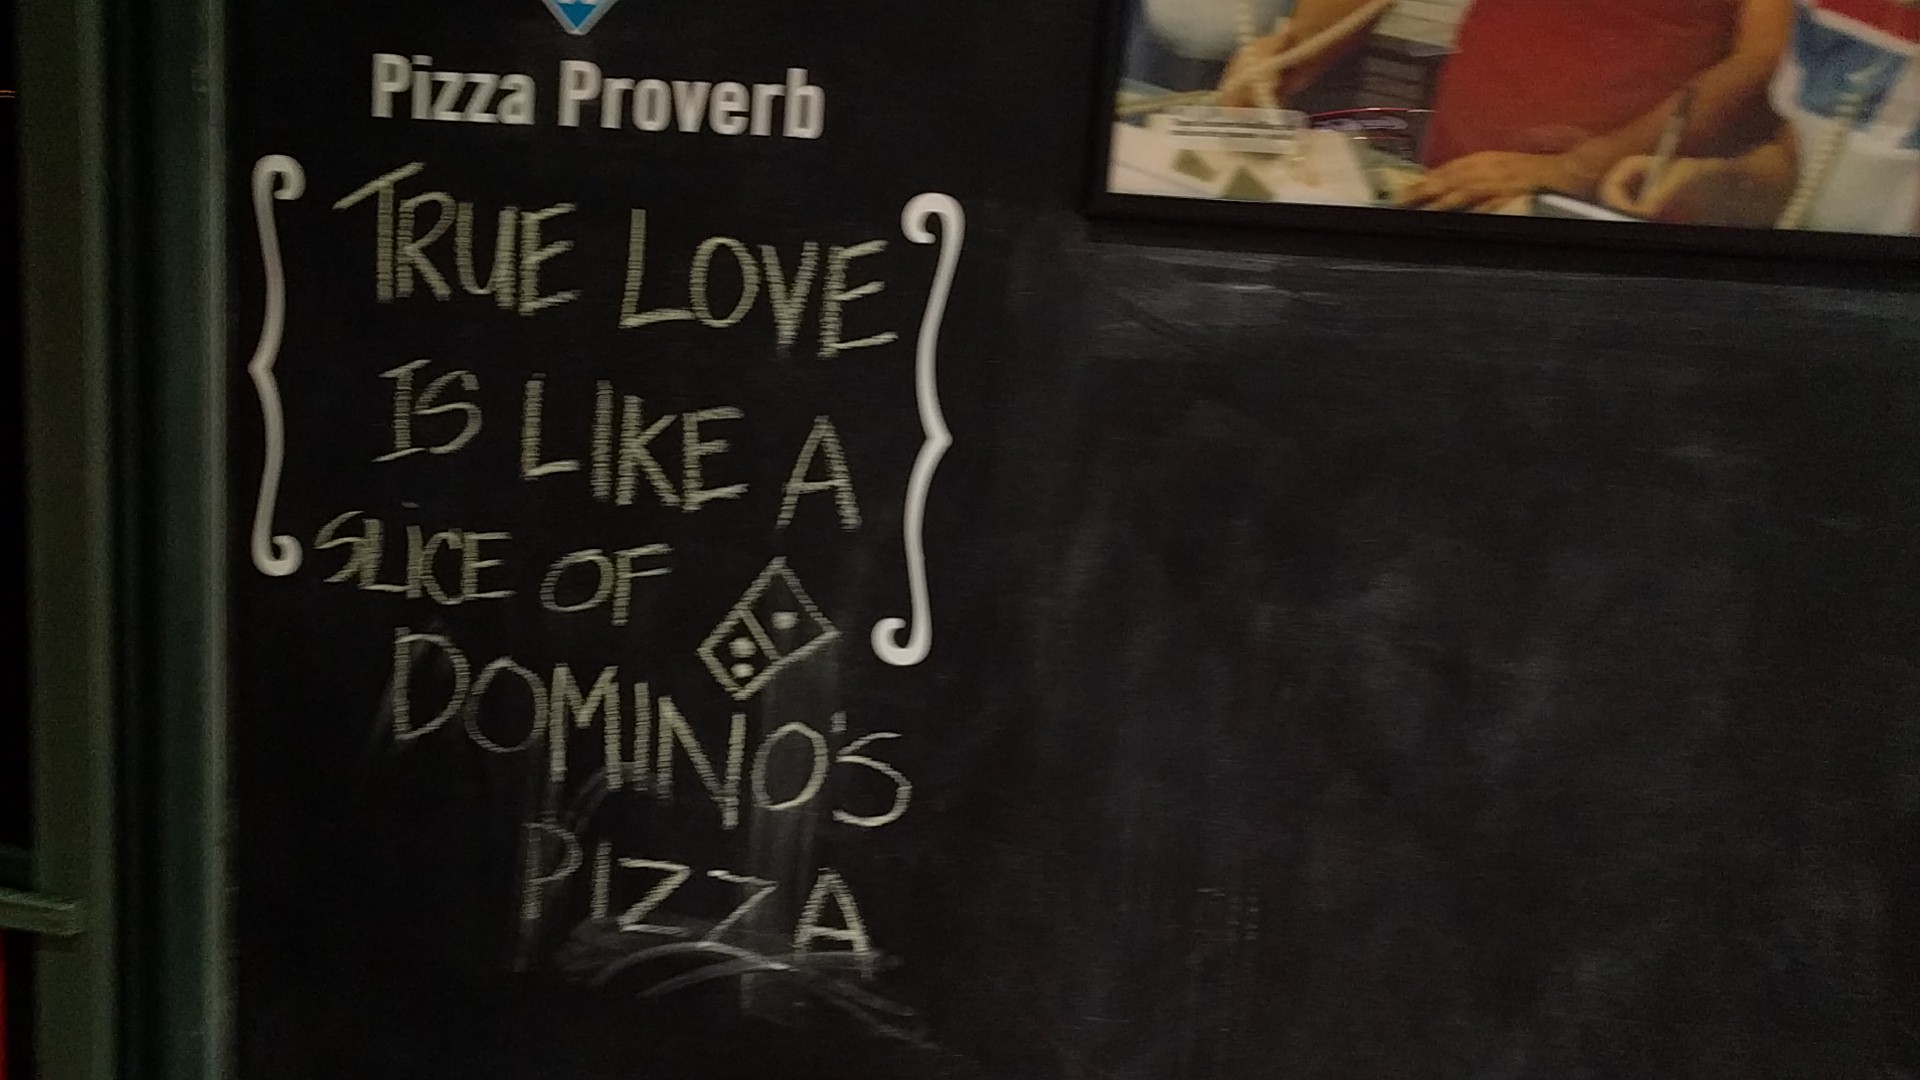 Pizza Proverb
TRUE LOVE
IS LIKE A
SLICE OF
DOMINO'S
PIZZA